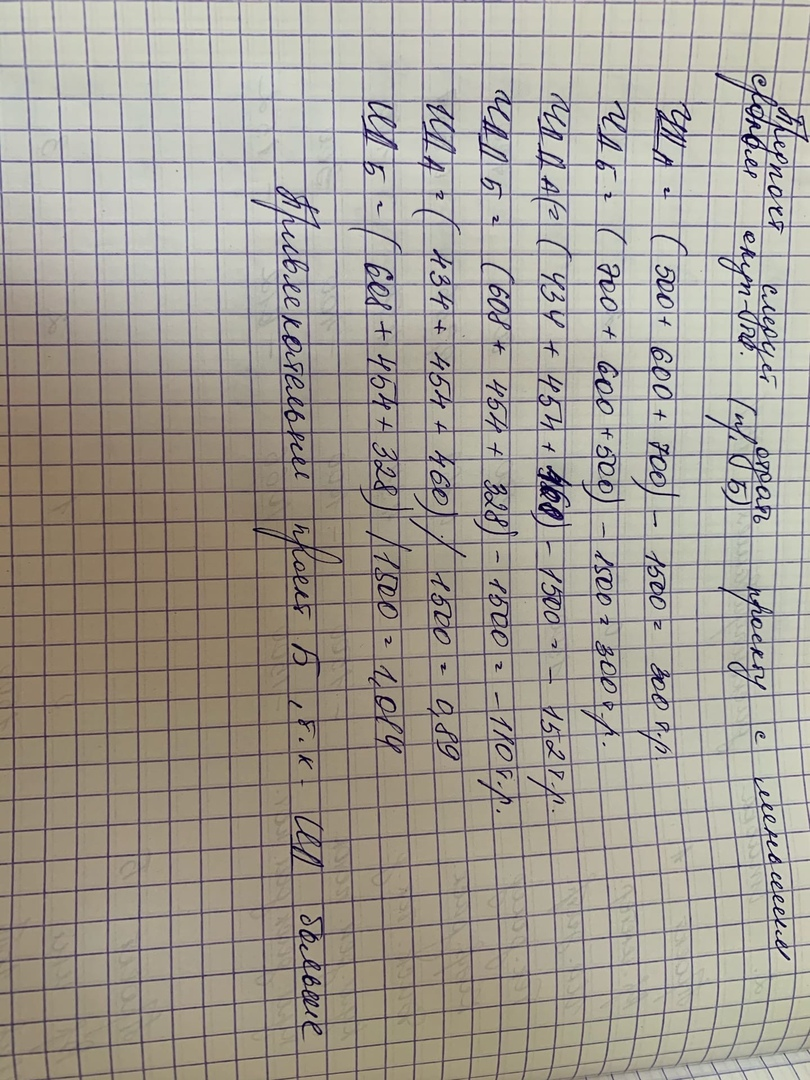 Предпочт следует отдать проекту с меньшим
сроком окуп-сти. (пр. Б)
ЧД А = (500 + 600 + 700) - 1500 = 300 т.р.
ЧД Б = (700 + 600 + 500) - 1500 = 300 т.р.
ЧДД А = (434 + 454 + 460) - 1500 = - 152 т.р.
ЧДД Б = (608 + 454 + 328) - 1500 = - 110 т.р.
ИД А = (434 + 454 + 460) / 1500 = 0,89
ИД Б = (608 + 454 + 328) / 1500 = 1,084
Привлекательнее проект Б, т.к. ИД больше